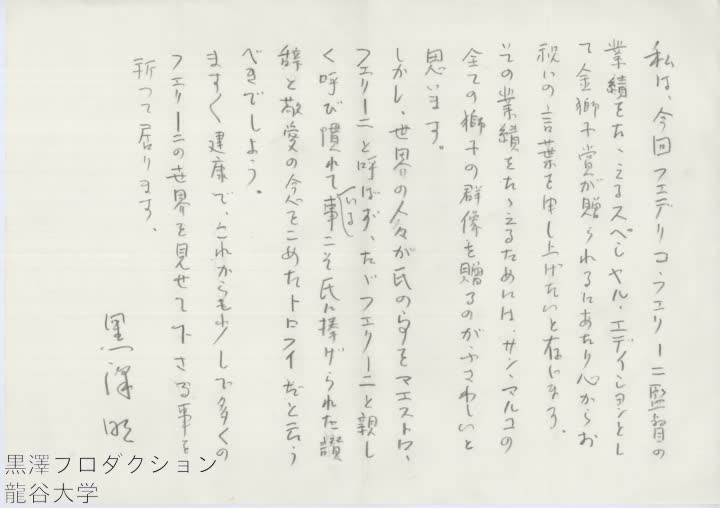 私は、今回フェデリコ・フェリーニ監督の
業績をたゝえるスペシャル・エディションとし
て金獅子賞が贈られるにあたり心からお
祝いの言葉を申し上げたいと存じます。
その業績をたゝえるためには、サン・マルコの
全ての獅子の群像を贈るのがふさわしいと
思います。
しかし、世界の人々が氏の事をマエストロ・
フェリーニと呼ばず、たゞフェリーニと親し
く呼び慣れている事こそ氏に捧げられた讃
辞と敬愛の念をこめたトロフィだと云う
べきでしょう。
ますく健康で、これからも少しでも多くの
フェリーニの世界を見せて下さる事を
祈って居ります、
黒澤明
黒澤プロダクション
龍谷大学